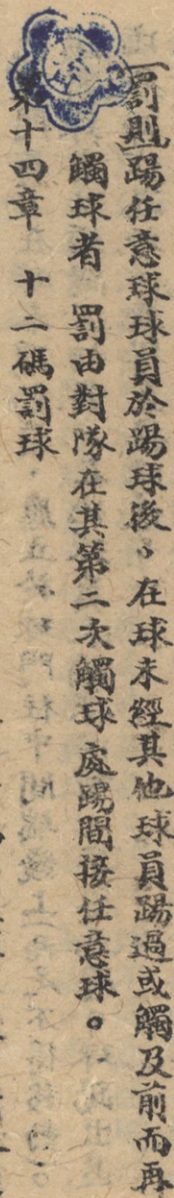 〔罰則〕踢任意球球員於踢球後，在球未經其他球員踢過或觸及前而再
觸球者　罰由對隊在其第二次觸球處踢間接任意球。
第十四章　十二碼罰球